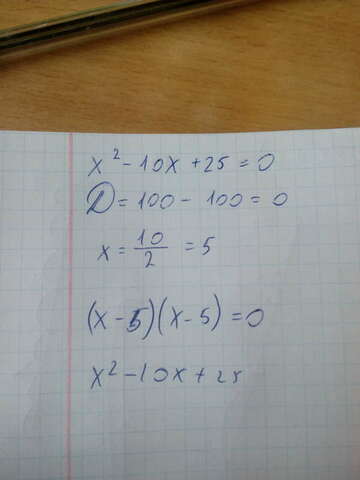 x² - 10x + 25 = 0
D = 100 - 100 = 0
x = 10/2 = 5
(x - 5)(x - 5) = 0
x² - 10x + 25